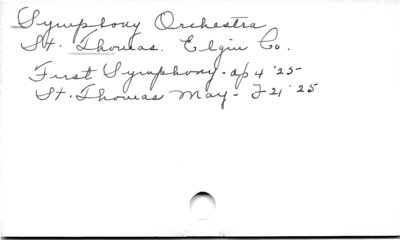 Symphony Orchestra
St. Thomas. Elgin Co.
First Symphony - Ap 4 '25 -
St. Thomas May - F 21 '25